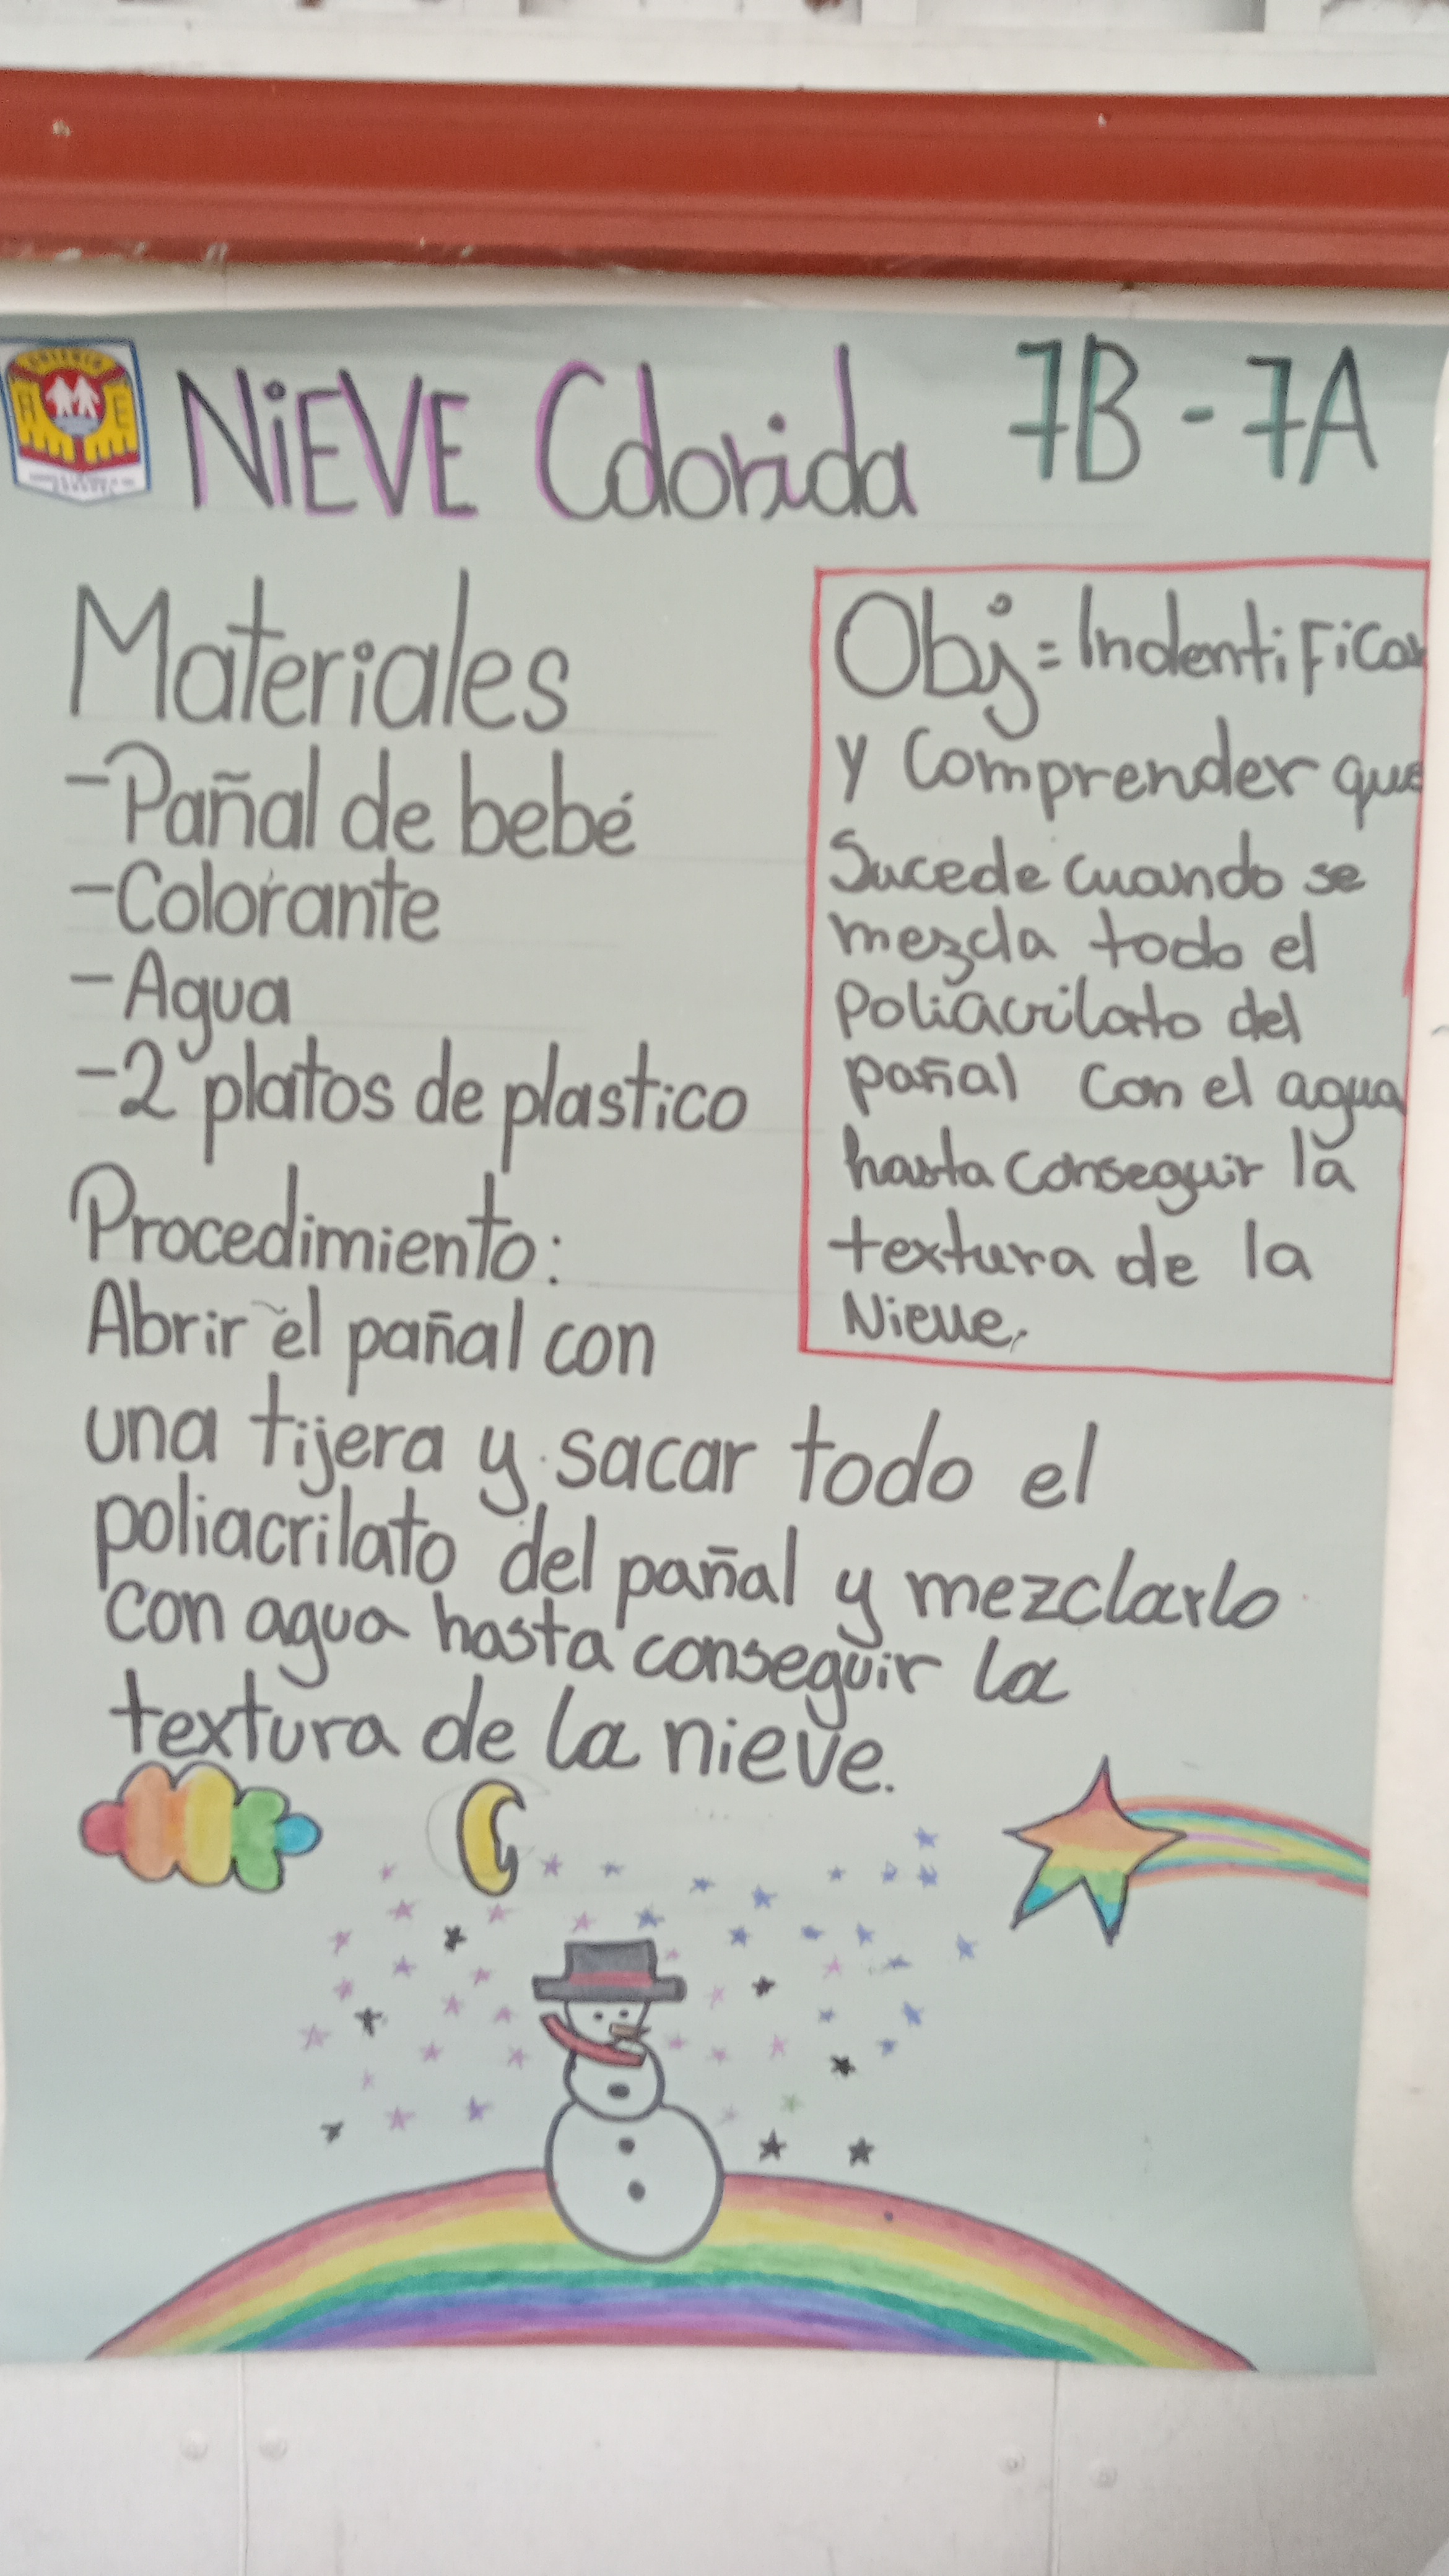 NiEVE Colorida 7B - 7A
Materiales
- Pañal de bebé
- Colorante
- Agua
- 2 platos de plastico
Procedimiento:
Abrir el pañal con
una tijera y sacar todo el
poliacrilato del pañal y mezclarlo
con agua hasta conseguir la
textura de la nieve.
Obj = IndentiFicar
y Comprender que
Sucede cuando se
mezcla todo el
poliacrilato del
pañal con el agua
hasta conseguir la
textura de la
Nieve.